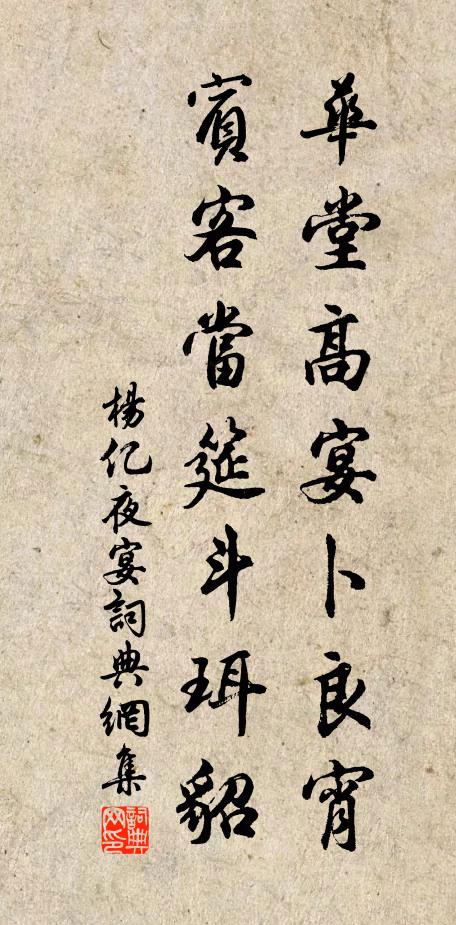 華堂高宴卜良宵
賓客當筵斗珥貂
楊億夜宴詞典網集
詞典網印